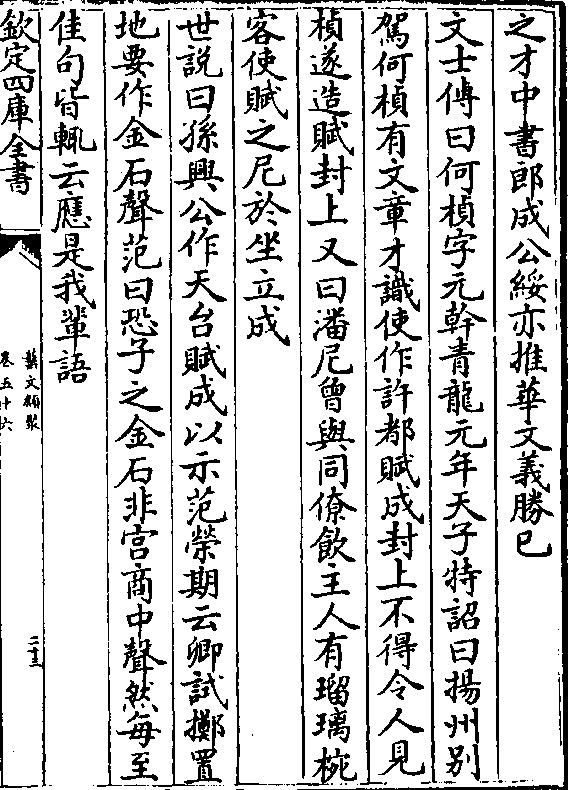 之才中書郎成公綏亦推華文義勝已
文士傅曰何楨字元幹青龍元年天子特詔曰揚州别
駕何楨有文章才識使作許都賦成封上不得令人見
楨遂造賦封上又曰潘尼曾與同僚飲主人有瑠璃椀
客使賦之尼於坐立成
世説曰孫興公作天台賦成以示范榮期云卿試擲置
地要作金石聲范曰恐子之金石非宫商中聲然每至
佳句皆輒云應是我輩語
欽定四庫全書
藝文類聚
卷五十六
二十三